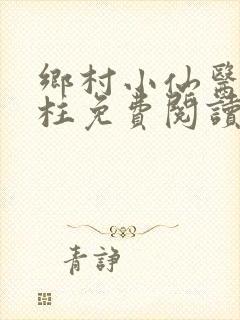 鄉村小仙醫
柱免費閱讀
青諍